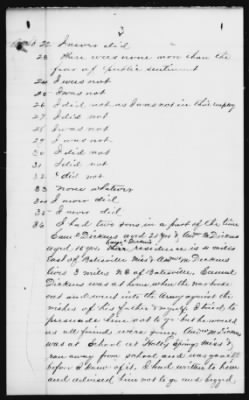 3
22 I never did
23 There was none more than the
fear of public sentiment
24 I was not
25 I was not
26 I did not as I was not in their employ
27 I did not
28 I was not
29 I was not
30 I did not
31 I did not
32 I did not
33 None whatever
34 I never did
35 I never did
36 I had two sons in a part of the time
Saml Dickens aged 21 yrs & Andw M Dickens
aged 18 yrs. residence is 4 miles
East of Batesville Miss & Andrew M Dickens
lives 3 miles N E of Batesville. Samuel
Dickens was at home when the war broke
out and went into the Army against the
wishes of his father & myself. I tried to
persuade him not to go but he went
as all friends were going Andrew M Dickens
was at School at Holly Springs Miss &
ran away from school and was gone
before I knew of it. I had written to him
and advised him not to go and begged